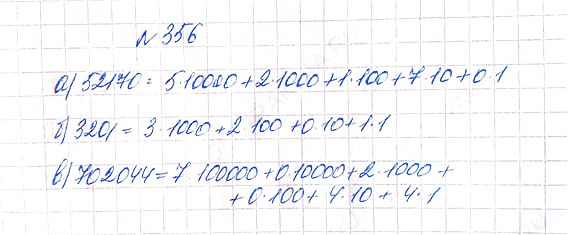 №356
а) 52170 = 5·10000 + 2·1000 + 1·100 + 7·10 + 0·1
б) 3201 = 3·1000 + 2·100 + 0·10 + 1·1
в) 702044 = 7·100000 + 0·10000 + 2·1000 +
+ 0·100 + 4·10 + 4·1